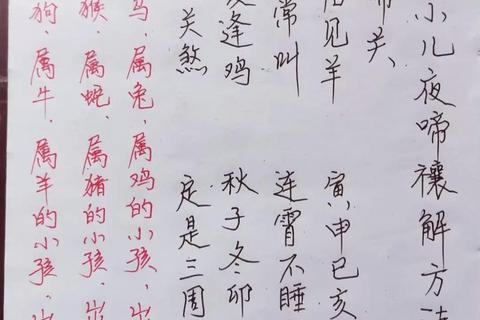 小儿夜啼禳解方
关
见羊 寅申巳亥
常叫 连霄不睡
逢鸡 秋子冬卯
关煞 定是三周
马、属兔、属鸡的小孩,
猴、属蛇、属猪的小孩,
狗、属牛、属羊的小孩,